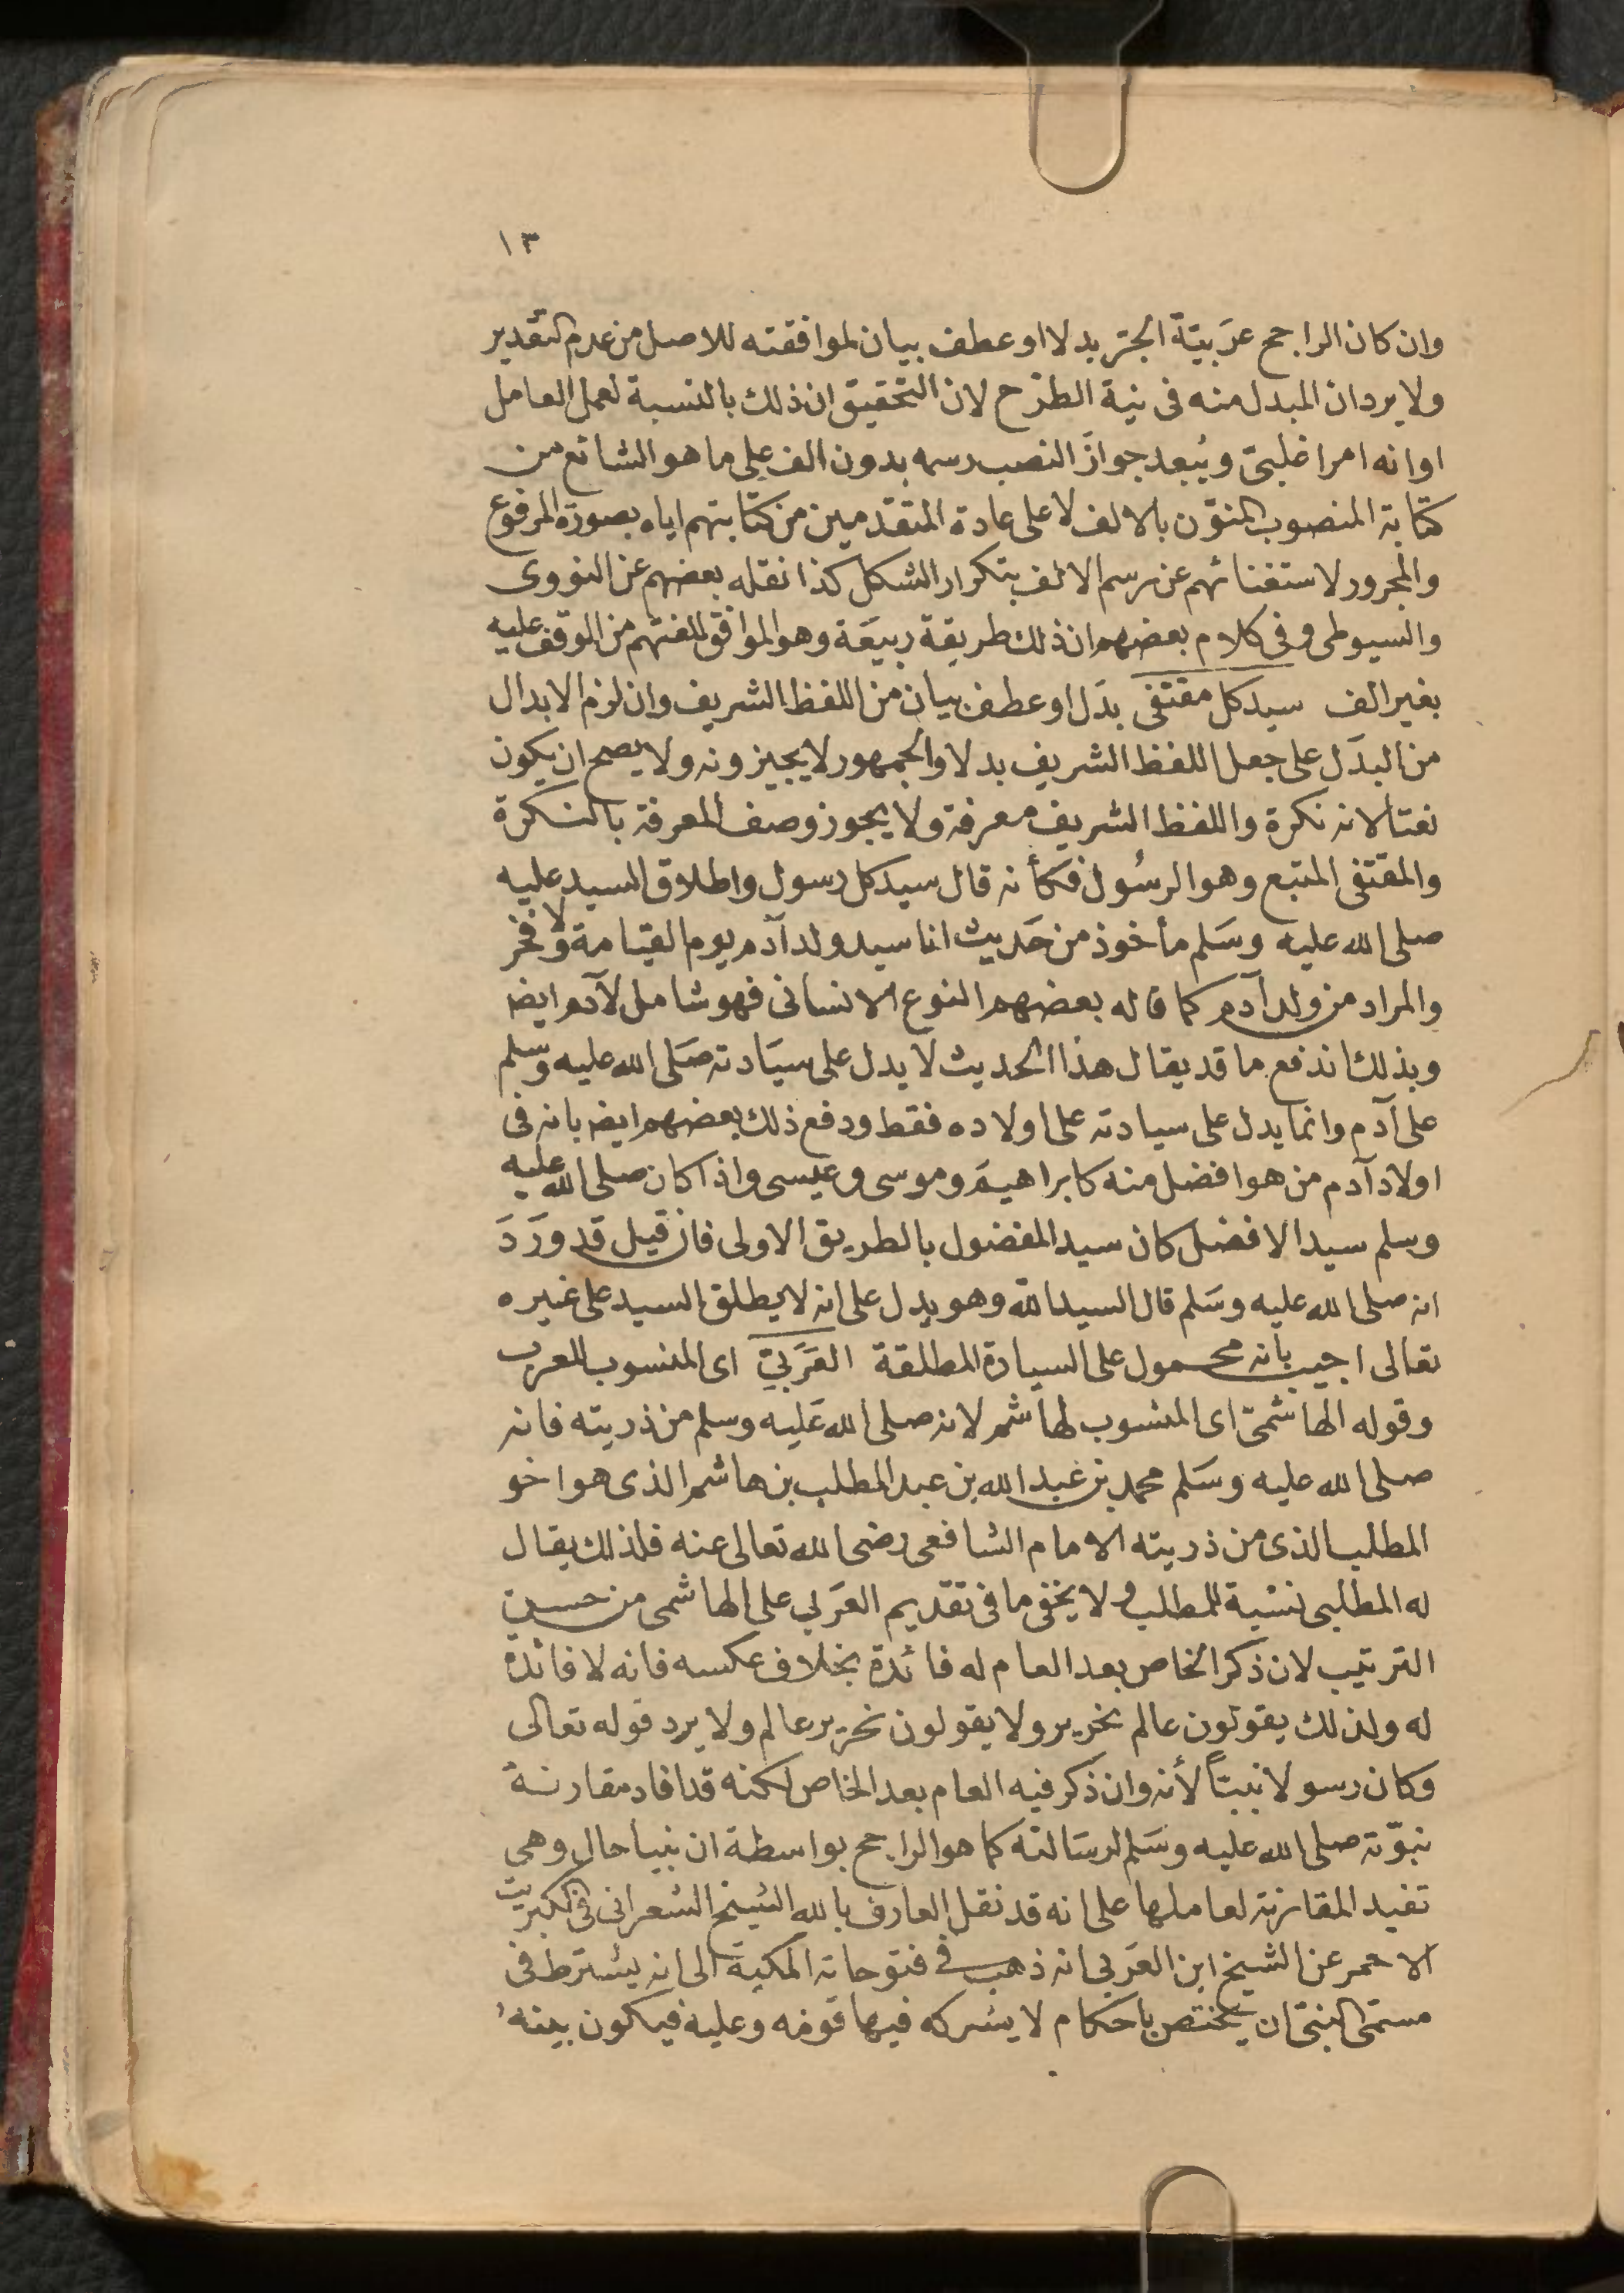 ١٣
وان كان الراجح عَربيّةً الجرّ بدلا او عطف بيان لموافقته للاصل من عدم التقدير
ولا يرد ان المبدل منه فى نية الطرْح لان التحقيق ان ذلك بالنسبة لعمل العامل
او انه امر اغلبىّ ويُبعد جوازَ النصب رسمه بدون الف على ما هو الشائع من
كتابة المنصوب المنوّن بالالف لا على عادة المتقدمين من كتابتهم اياه بصورة المرفوع
والمجرور لاستغنائهم عن رسم الالف بتكرار الشكل كذا نقله بعضهم عن النووى
والسيوطى وفى كلام بعضهم ان ذلك طريقة ربيعَة وهو الموافق للغتهم من الوقف عليه
بغير الف سيد كل مقتفى بدَل او عطف بيان من اللفظ الشريف وان لزم الابدال
من البدَل على جعل اللفظ الشريف بدلا والجمهور لا يجيزونه ولا يصح ان يكون
نعتا لانه نكرة واللفظ الشريف معرفة ولا يجوز وصف المعرفة بالنكرة
والمقتفى المتبع وهو الرسُول فكأنه قال سيد كل رسول واطلاق السيد عليه
صلى الله عليه وسَلم مأخوذ من حَديث انا سيد ولد آدم يوم القيامة ولا فخر
والمراد من ولد آدم كما قاله بعضهم النوع الانسانى فهو شامل لآدم ايضا
وبذلك اندفع ما قد يقال هذا الحديث لا يدل على سيَادته صَلى الله عليه وسلم
على آدم وانما يدل على سيادته على اولاده فقط ودفع ذلك بعضهم ايضا بانه فى
اولاد آدم من هو افضل منه كابراهيمَ وموسى وعيسى واذا كان صلى الله عليه
وسلم سيد الافضل كان سيد المفضول بالطريق الاولى فان قيل قد ورَدَ
انه صلى الله عليه وسَلم قال السيد الله وهو يدل على انه لا يطلق السيد على غيره
تعالى اجيب بانه محمول على السيادة المطلقة العَرَبيّ اى المنسوب للعرب
وقوله الهاشمىّ اى المنسوب لهاشم لانه صلى الله عَليه وسلم من ذريته فانه
صلى الله عليه وسَلم محمد بن عَبد الله بن عبد المطلب بن هاشم الذى هو اخو
المطلب الذى من ذريته الامام الشافعى رضى الله تعالى عنه فلذلك يقال
له المطلبى نسبة للمطلب ولا يخفى ما فى تقديم العَربى على الهاشمى من حسن
الترتيب لان ذكر الخاص بعد العام له فائدة بخلاف عكسه فانه لا فائدة
له ولذلك يقولون عالم نحرير ولا يقولون نحرير عالم ولا يرد قوله تعالى
وكان رسولا نبيّاً لأنه وان ذكر فيه العام بعد الخاص لكنه قد افاد مقارنة
نبوّته صلى الله عليه وسَلم لرسَالته كما هو الراجح بواسطة ان نبيا حال وهى
تفيد المقارنة لعاملها على انه قد نقل العارف بالله الشيخ الشعرانى فى الكبريت
الاحمر عن الشيخ ابن العَربى انه ذهب فى فتوحاته المكية الى انه يشترط فى
مسمّى النبىّ ان يختص باحكام لا يشركه فيها قومه وعليه فيكون بينهُ